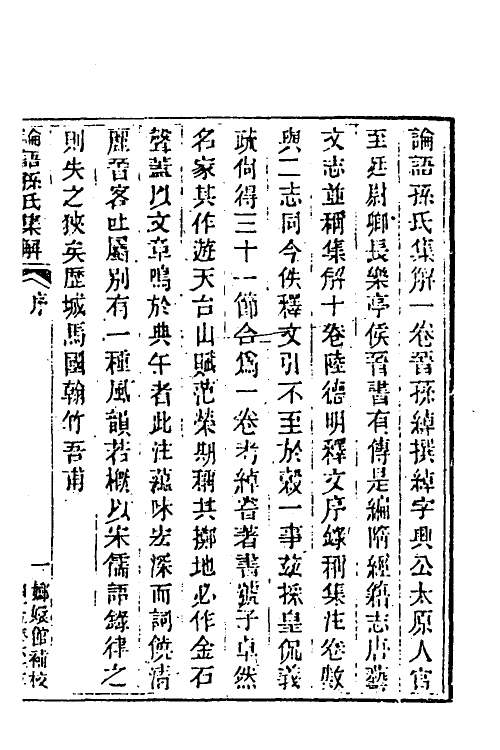 論語孫氏集解一卷晉孫綽撰綽字興公太原人官
至廷尉卿長樂亭侯晉書有傳是編隋經籍志唐藝
文志並稱集解十卷陸德明釋文序錄稱集注卷數
與二志同今佚釋文引不至於穀一事並採皇侃義
疏尙得三十一節合爲一卷考綽嘗著書號子卓然
名家其作遊天台山賦范榮期稱其擲地必作金石
聲蓋以文章鳴於典午者此注蘊味宏深而詞饒淸
麗晉客吐屬別有一種風韻若槪以宋儒語錄律之
則失之狹矣歷城馬國翰竹吾甫
論語孫氏集解 序 一 嫏嬛館補校